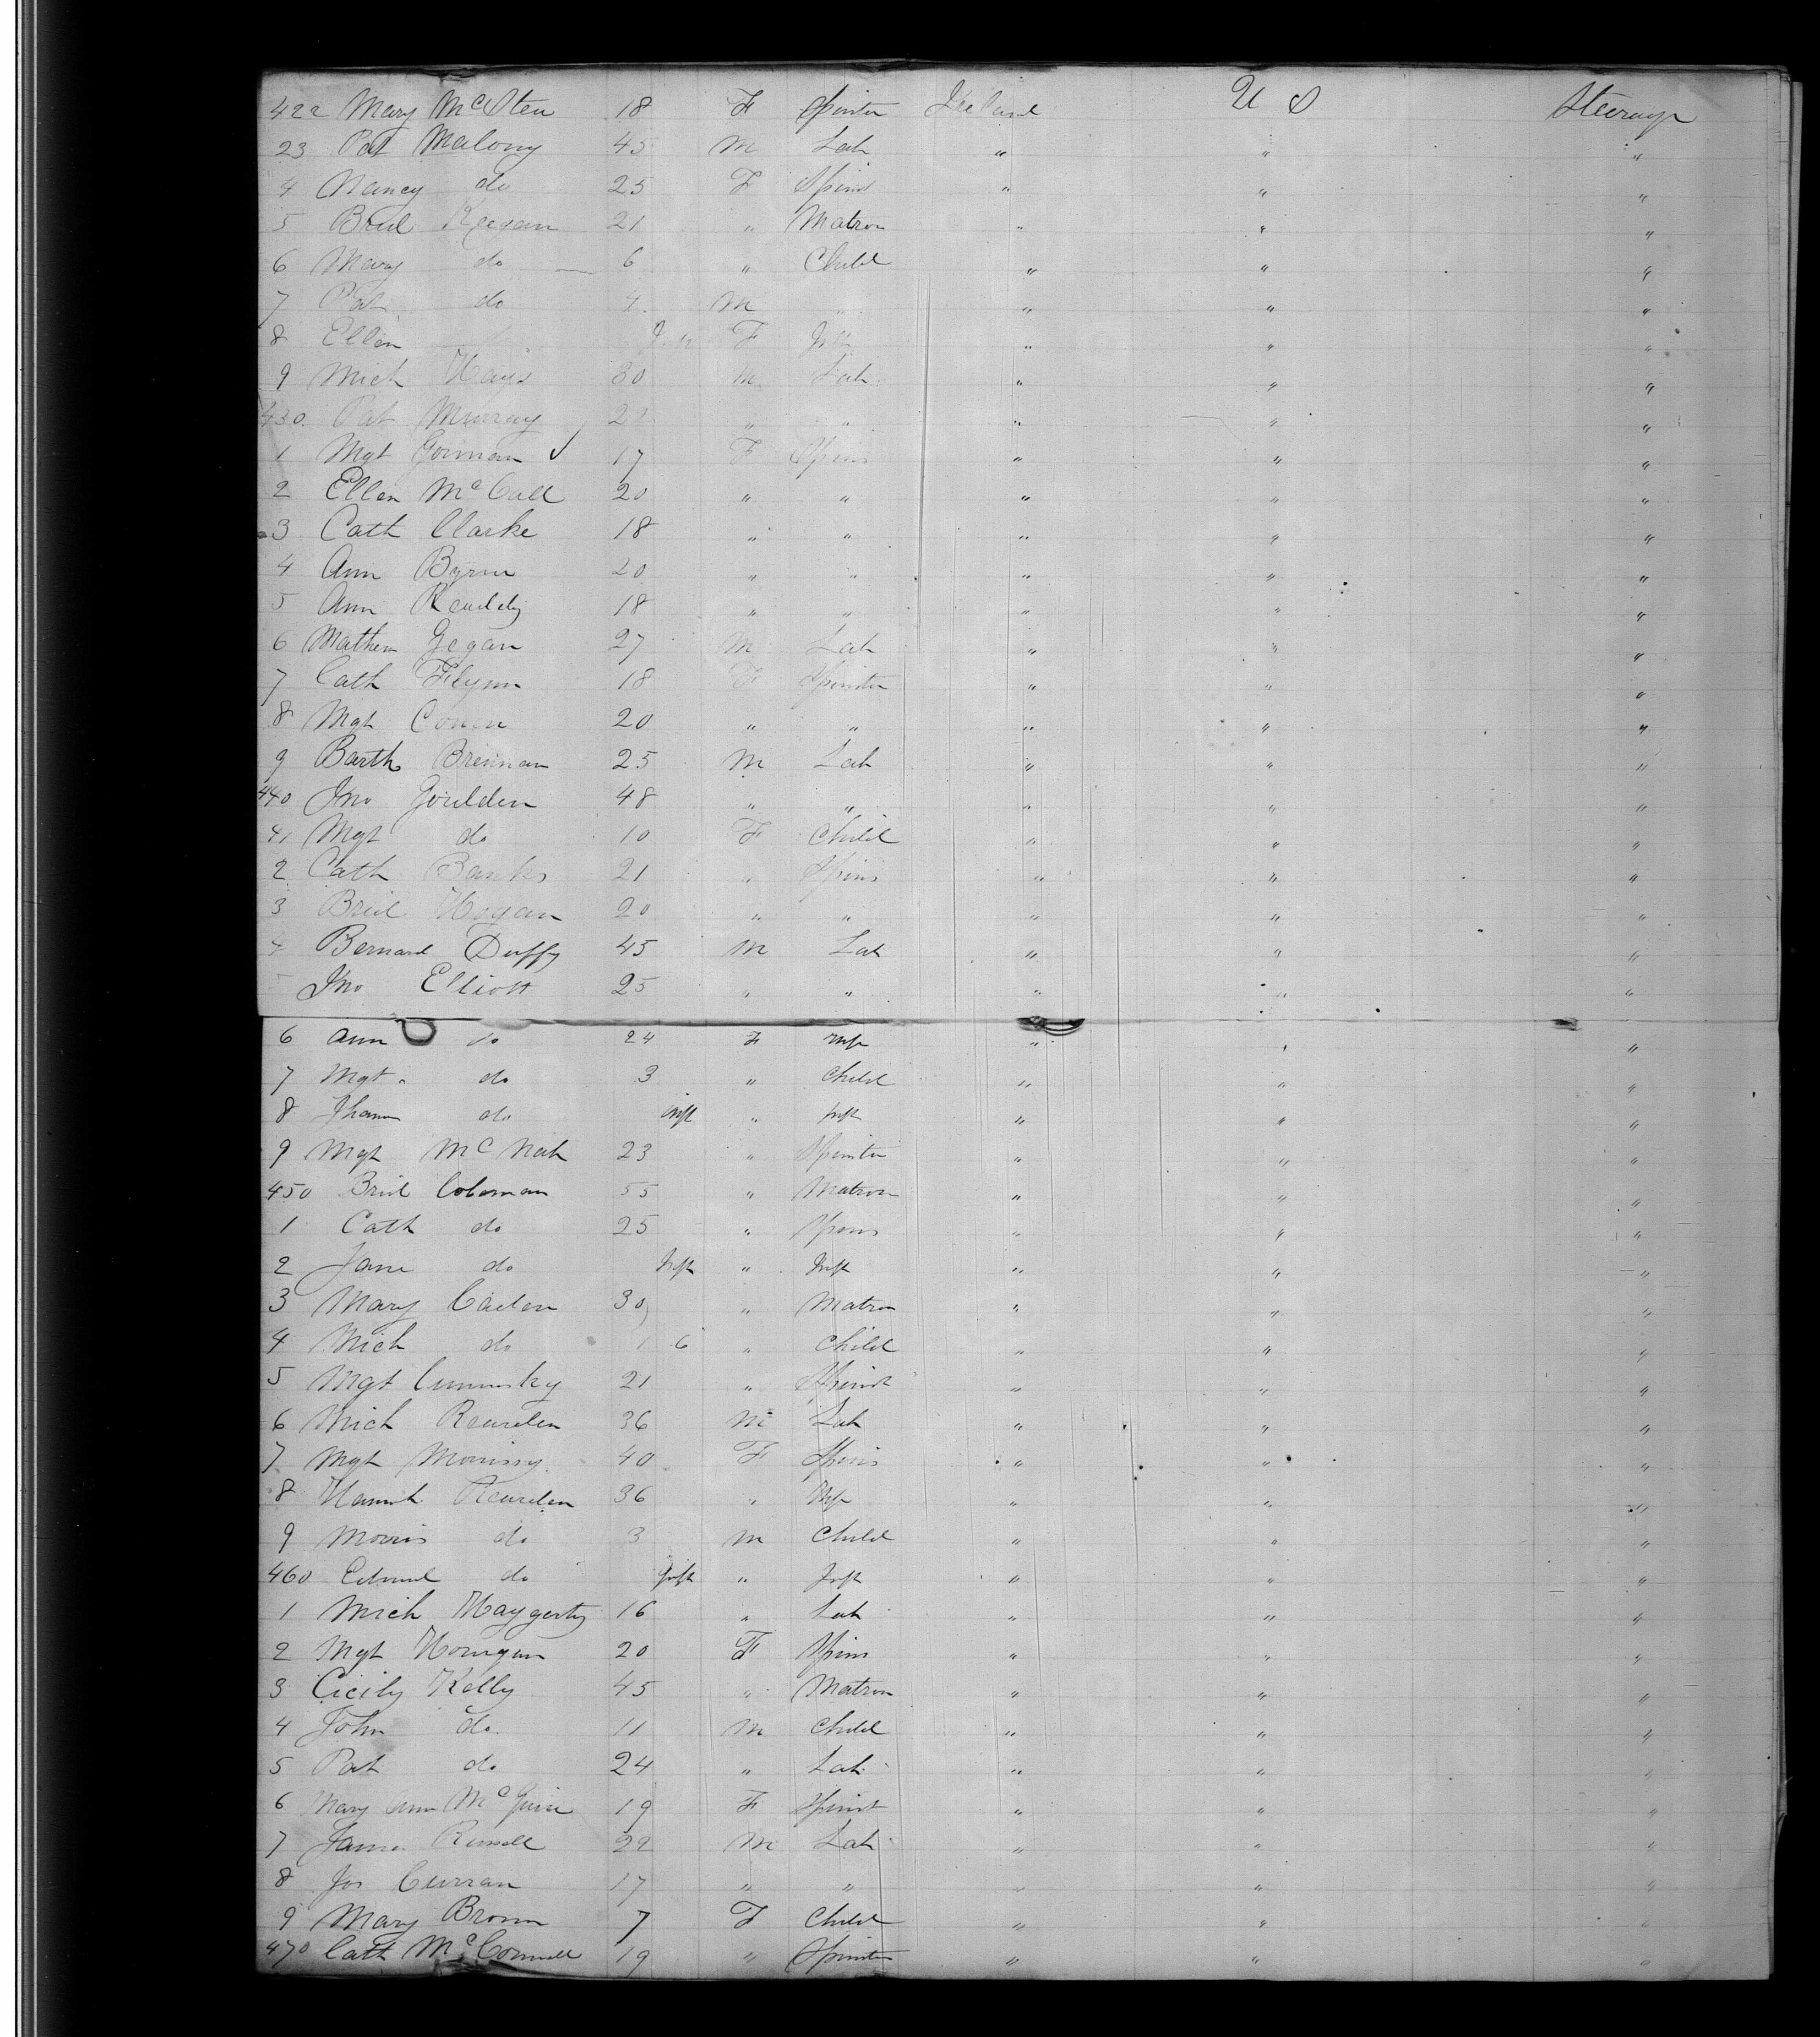 422 Mary McSteu 18 F Spinter Ireland U S Steerage
23 Pat Malony 45 M Lab " " "
4 Nancy do 25 F Spinst " " "
5 Brid Keegan 21 " Matron " " "
6 Mary do 6 " Child " " "
7 Pat do 4 M " " " "
8 Ellen F Inft " " "
9 Mich Hays 30 M Lab " " "
430 Pat Murray " " " " "
1 Mgt Gorman ✓ 17 F Spins " " "
2 Ellen McCall 20 " " " " "
3 Cath Clarke 18 " " " " "
4 Ann Byrne 20 " " " " "
5 Ann Reuddy 18 " " " " "
6 Mathew Gegan 27 M Lab " " "
7 Cath Flynn 18 F Spinster " " "
8 Mgt Conen 20 " " " " "
9 Barth Brennan 25 M Lab " " "
440 Jno Goulden 48 " " " " "
41 Mgt do 10 F Child " " "
2 Cath Banks 21 " Spins " " "
3 Brid Hogan 20 " " " " "
4 Bernard Duffy 45 M Lab " " "
5 Jno Elliott 25 " " " " "
6 Ann do 24 F Wife " " "
7 Mgt do 3 " Child " " "
8 do inft " Inft " " "
9 Mgt McNab 23 " Spinster " " "
450 Brid Coleman 55 " Matron " " "
1 Cath do 25 " Spins " " "
2 Jane do Inft " Inft " " "
3 Mary Caden 30 " Matron " " "
4 Mich do 1 6 " Child " " "
5 Mgt Cummsky 21 " Spinst " " "
6 Mich Rearden 36 M Lab " " "
7 Mgt Morrissy 40 F Spins " " "
8 Hannah Rearden 36 " Wife " " "
9 Morris do 3 M Child " " "
460 Edmund do Inft " Inft " " "
1 Mich Haggerty 16 " Lab " " "
2 Mgt Hourgan 20 F Spins " " "
3 Cicily Kelly 45 " Matron " " "
4 John do 11 M Child " " "
5 Pat do 24 " Lab " " "
6 Mary Ann McGuire 19 F Spinst " " "
7 James Russell 22 M Lab " " "
8 Jos Curran 17 " " " " "
9 Mary Brown 7 F Child " " "
470 Cath McConnell 19 " Spinster " " "